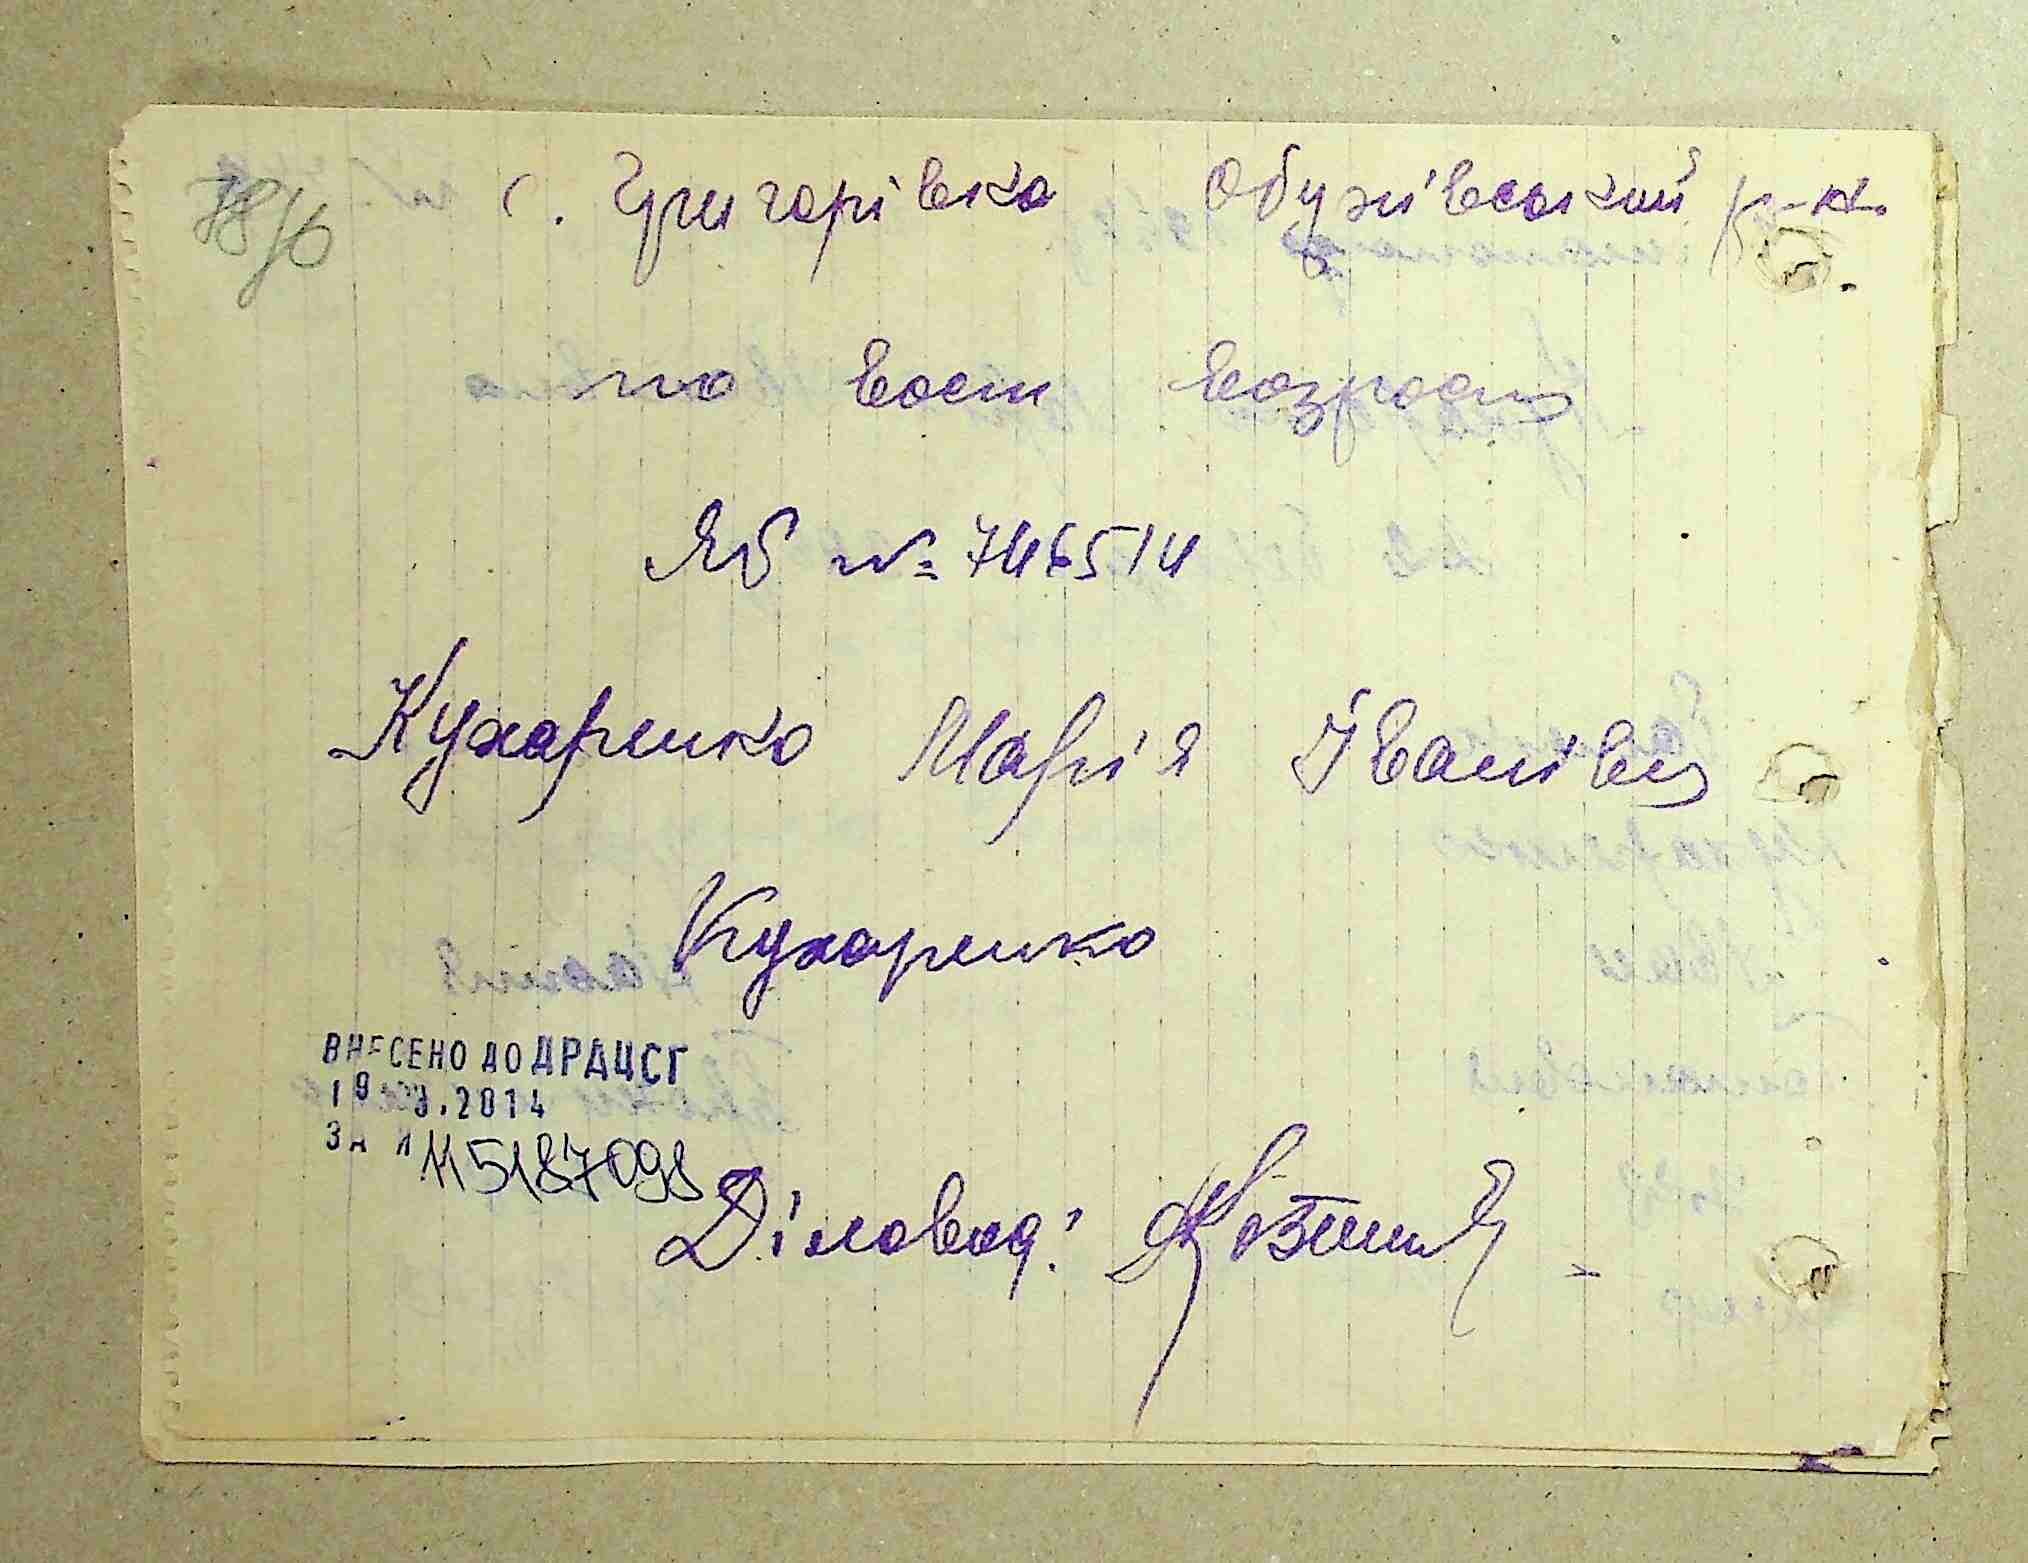 с. Григорівка Обухівський р-н.
по вост возрасту
ЯБ № 746514
Кухаренко Марія Іванівна
Кухаренко
ВНЕСЕНО ДО ДРАЦСГ
2014
ЗА № 115187098
Діловод: